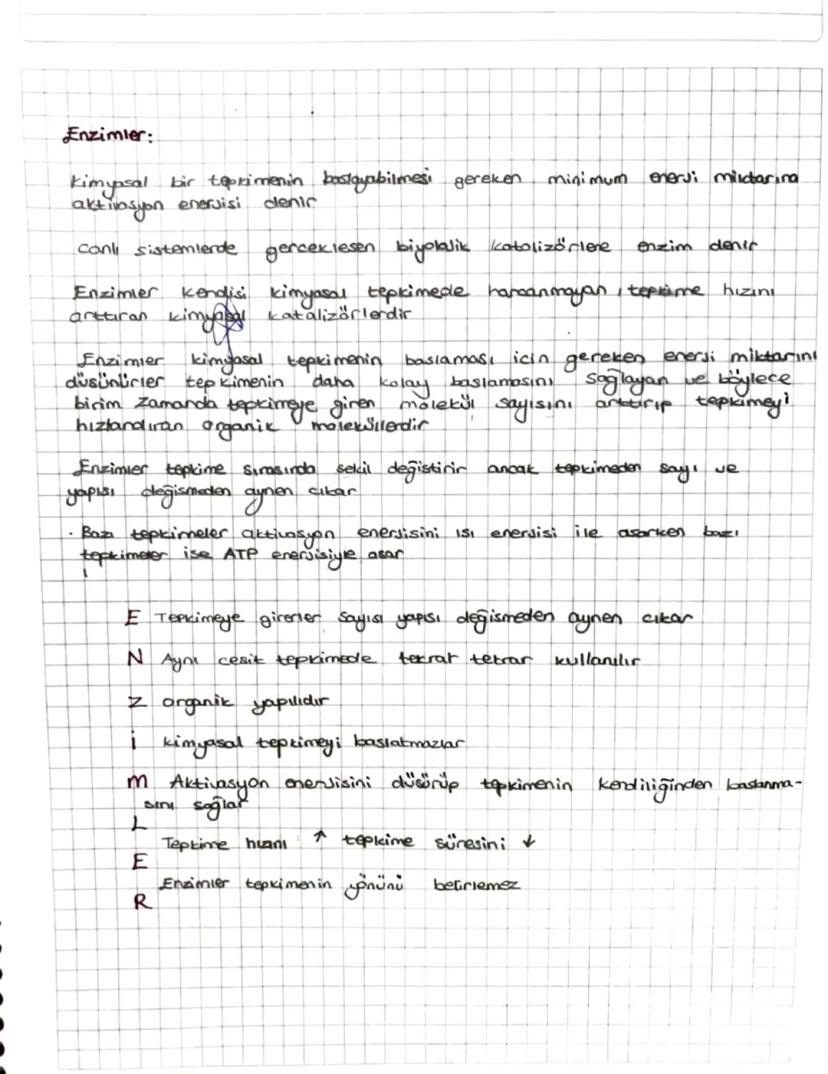 Enzimler:
kimyasal bir tepkimenin baslayabilmesi gereken minimum enerji miktarına
aktivasyon enerjisi denir
canlı sistemlerde gerceklesen biyolojik katolizörlere enzim denir
Enzimler kendisi kimyasal tepkimede harcanmayan, tepkime hızını
arttıran kimyasal katalizörlerdir
Enzimler kimyasal tepkimenin baslaması icin gereken enerji miktarını
düsünürler tepkimenin daha kolay baslamasını sağlayan ve böylece
birim zamanda tepkimeye giren molekül sayısını arttırıp tepkimeyi
hızlandıran organik moleküllerdir
Enzimler tepkime sırasında sekil değistirir ancak tepkimeden sayı ve
yapısı değismeden aynen cıkar
· Bazı tepkimeler aktivasyon enerjisini ısı enerjisi ile asarken bazı
tepkimeler ise ATP enerjisiyle asar
E Tepkimeye girerler sayısı yapısı değismeden aynen cıkar
N Aynı cesit tepkimede tekrar tekrar kullanılır
Z organik yapılıdır
i kimyasal tepkimeyi baslatmazlar
m Aktivasyon enerjisini düsürüp tepkimenin kendiliğinden baslanma-
sını sağlar
L
Tepkime hızını ↑ tepkime süresini ↓
E
Enzimler tepkimenin yönünü belirlemez
R